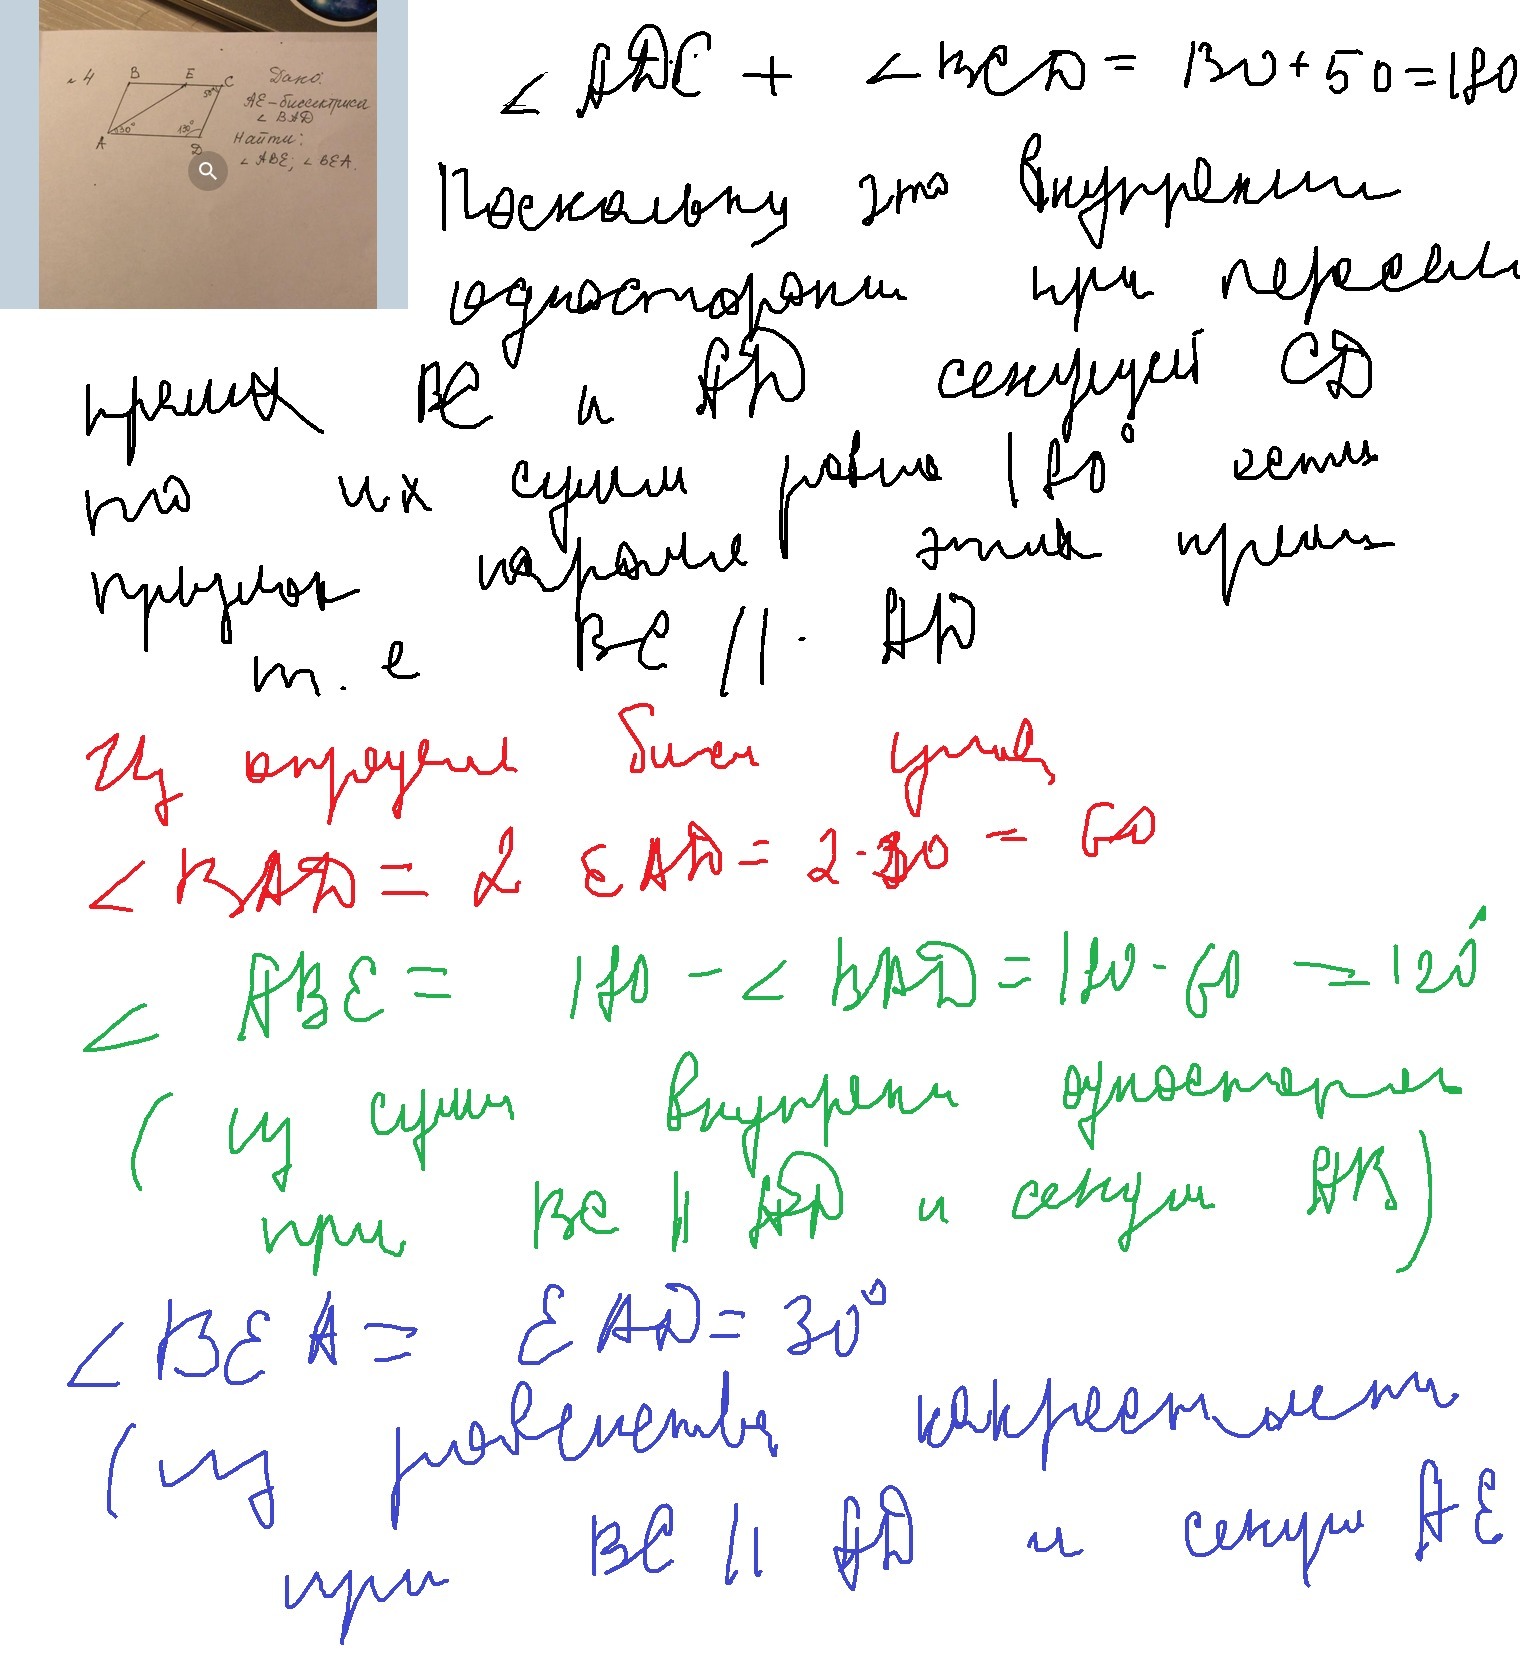 №4
B E C
50°
A 30° 130° D
Дано:
AE - биссектриса
∠ BAD
Найти:
∠ ABE; ∠ BEA.
∠ ADC + ∠ BCD = 130+50=180
Поскольку это внутренни
односторонни при пересеч
прямых BC и AD секущей CD
то их сумм равна 180°
этих прямы
т. е BC || AD
Из определ бисс угла
∠ BAD = 2 EAD = 2·30 = 60
∠ ABE = 180 - ∠ BAD = 180-60 = 120°
( из сумм внутрен односторон
при BC || AD и секущ AB )
∠ BEA = EAD = 30°
( из равенства накрестлежщ
при BC || AD и секущ AE